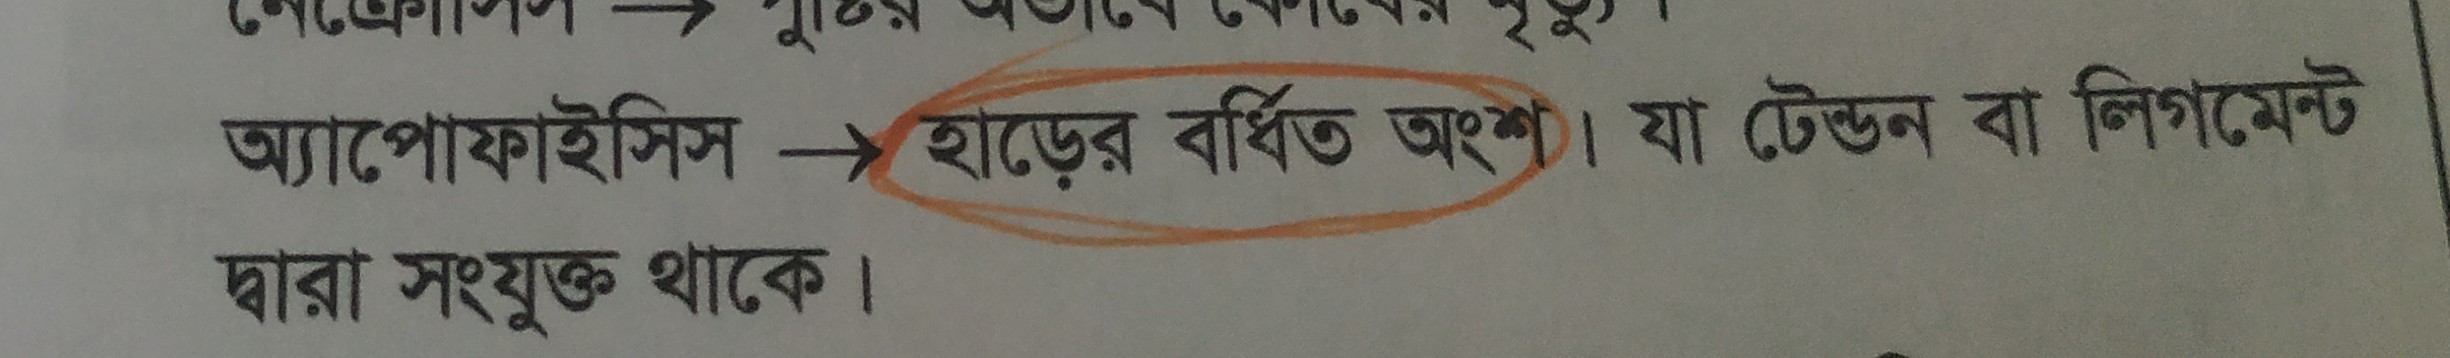 নেক্রোসিস → পুষ্টির অভাবে কোষের মৃত্যু।
অ্যাপোফাইসিস → হাড়ের বর্ধিত অংশ। যা টেন্ডন বা লিগমেন্ট
দ্বারা সংযুক্ত থাকে।